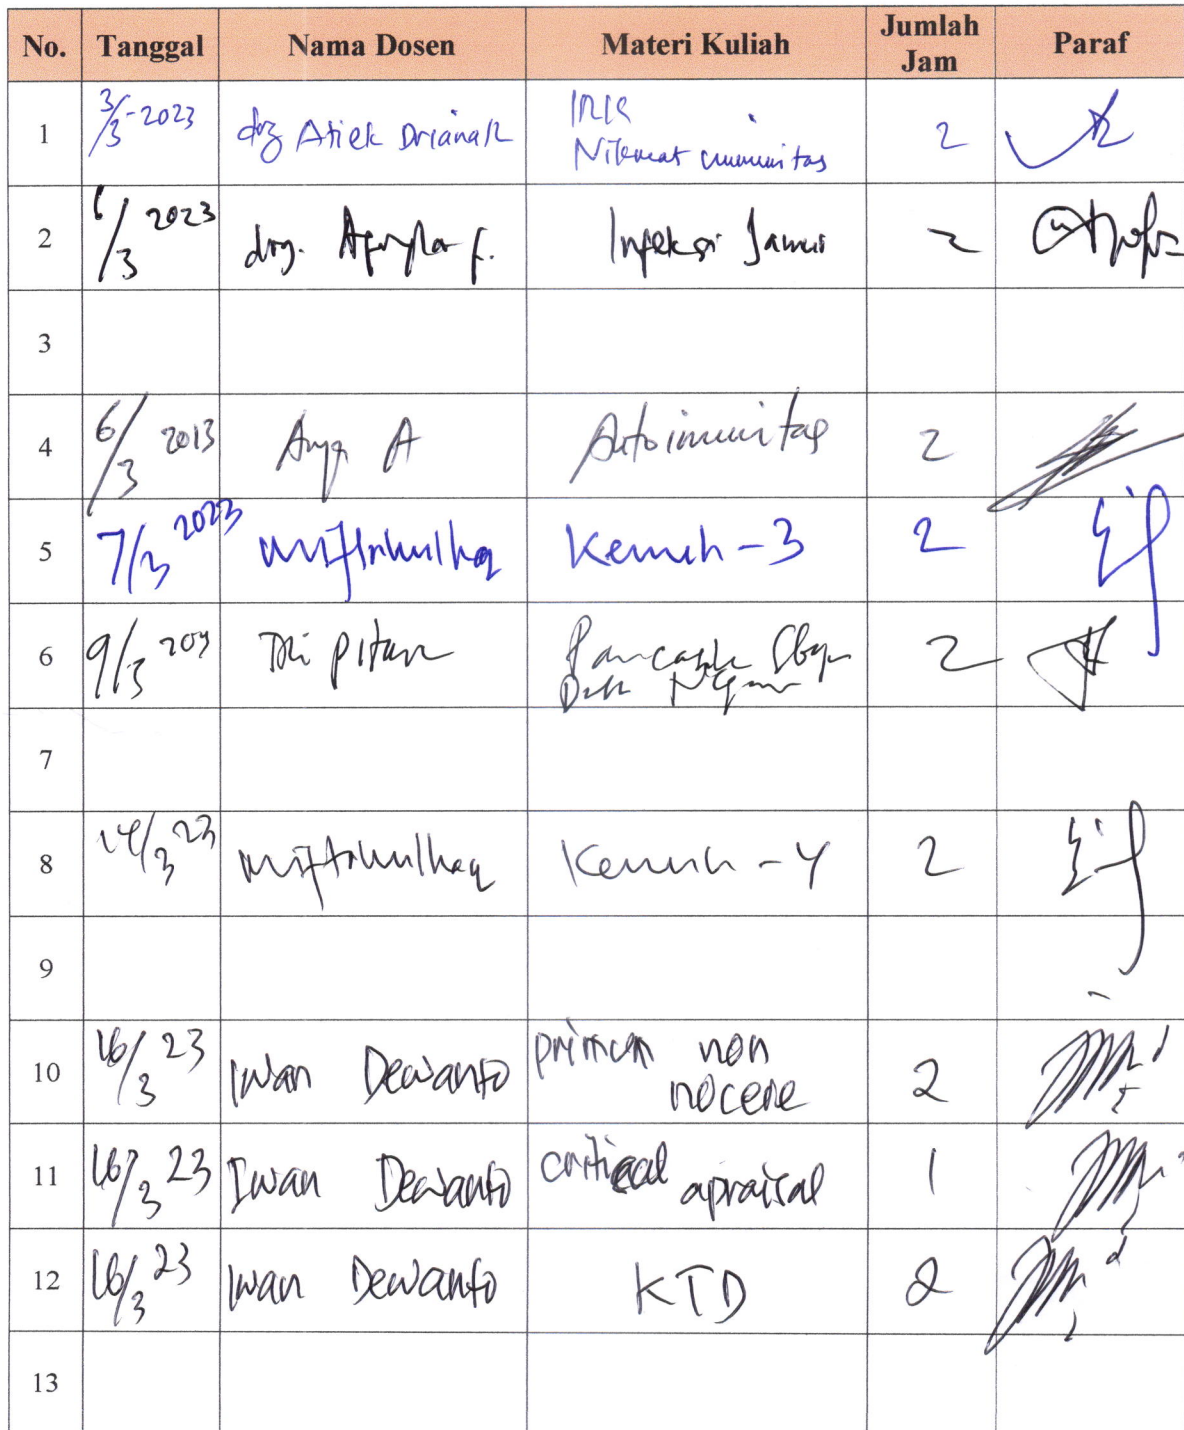 No. Tanggal Nama Dosen Materi Kuliah Jumlah Jam Paraf
1 3/3-2023 drg Atiek Driana R 2
2 /3 2023 drg. Infeksi Jamur 2
3
4 6/3 2013 Autoimunitas 2
5 7/3 2023 Miftahulhaq Kemuh-3 2
6 9/3 Pancasila 2
7
8 14/3 23 Miftahulhaq Kemuh-4 2
9
10 16/3 23 Iwan Dewanto primum non nocere 2
11 16/3 23 Iwan Dewanto critical apraisal 1
12 16/3 23 Iwan Dewanto KTD 2
13